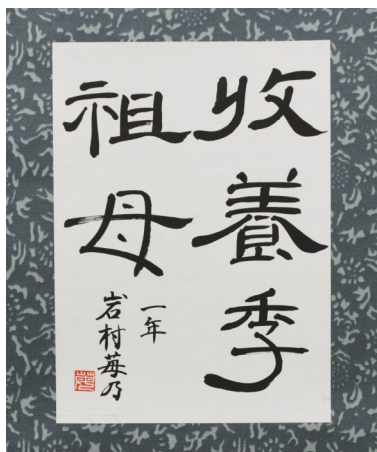 收養季
祖母
一年
岩村苺乃